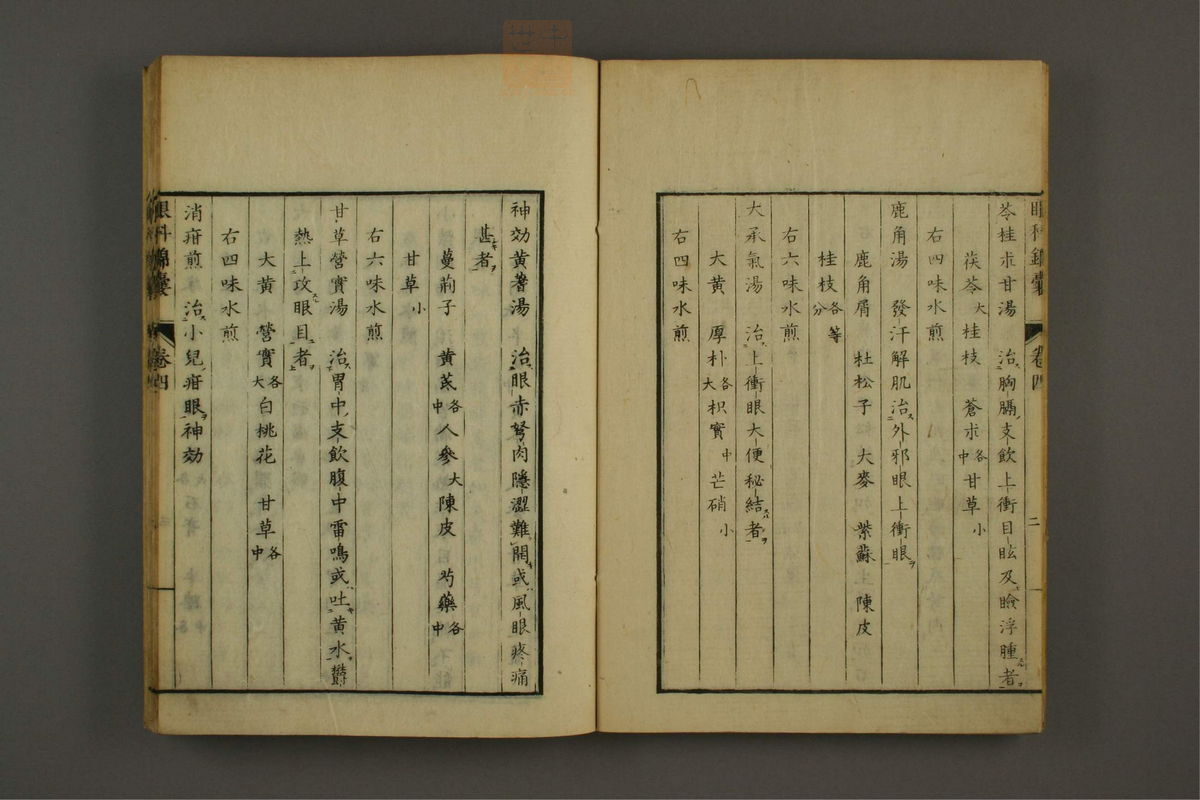 眼科錦囊 卷四 二
苓桂朮甘湯 治胸膈支飲上衝目眩及瞼浮腫者
茯苓大 桂枝 蒼朮各中 甘草小
右四味水煎
鹿角湯 發汗解肌治外邪眼上衝眼
鹿角屑 杜松子 大麥 紫蘇 陳皮
桂枝各等分
右六味水煎
大承氣湯 治上衝眼大便秘結者
大黃 厚朴各大 枳實中 芒硝小
右四味水煎
神効黃耆湯 治眼赤弩肉隱澀難開或風眼疼痛
甚者
蔓荊子 黃芪各中 人參大 陳皮 芍藥各中
甘草小
右六味水煎
甘草營實湯 治胃中支飲腹中雷鳴或吐黃水欝
熱上攻眼目者
大黃 營實各大 白桃花 甘草各中
右四味水煎
消疳煎 治小兒疳眼神効
眼科錦囊 卷四